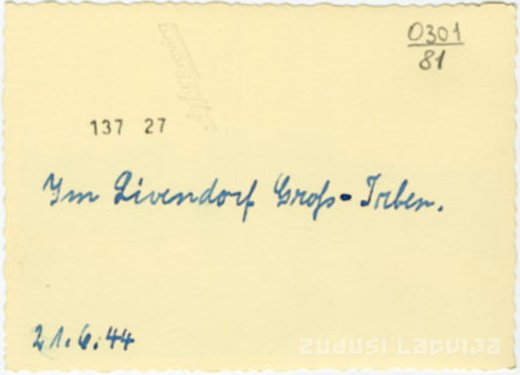 0301
81
137 27
Im Livendorf Groß-Irben.
21.6.44
zudusi Latvija